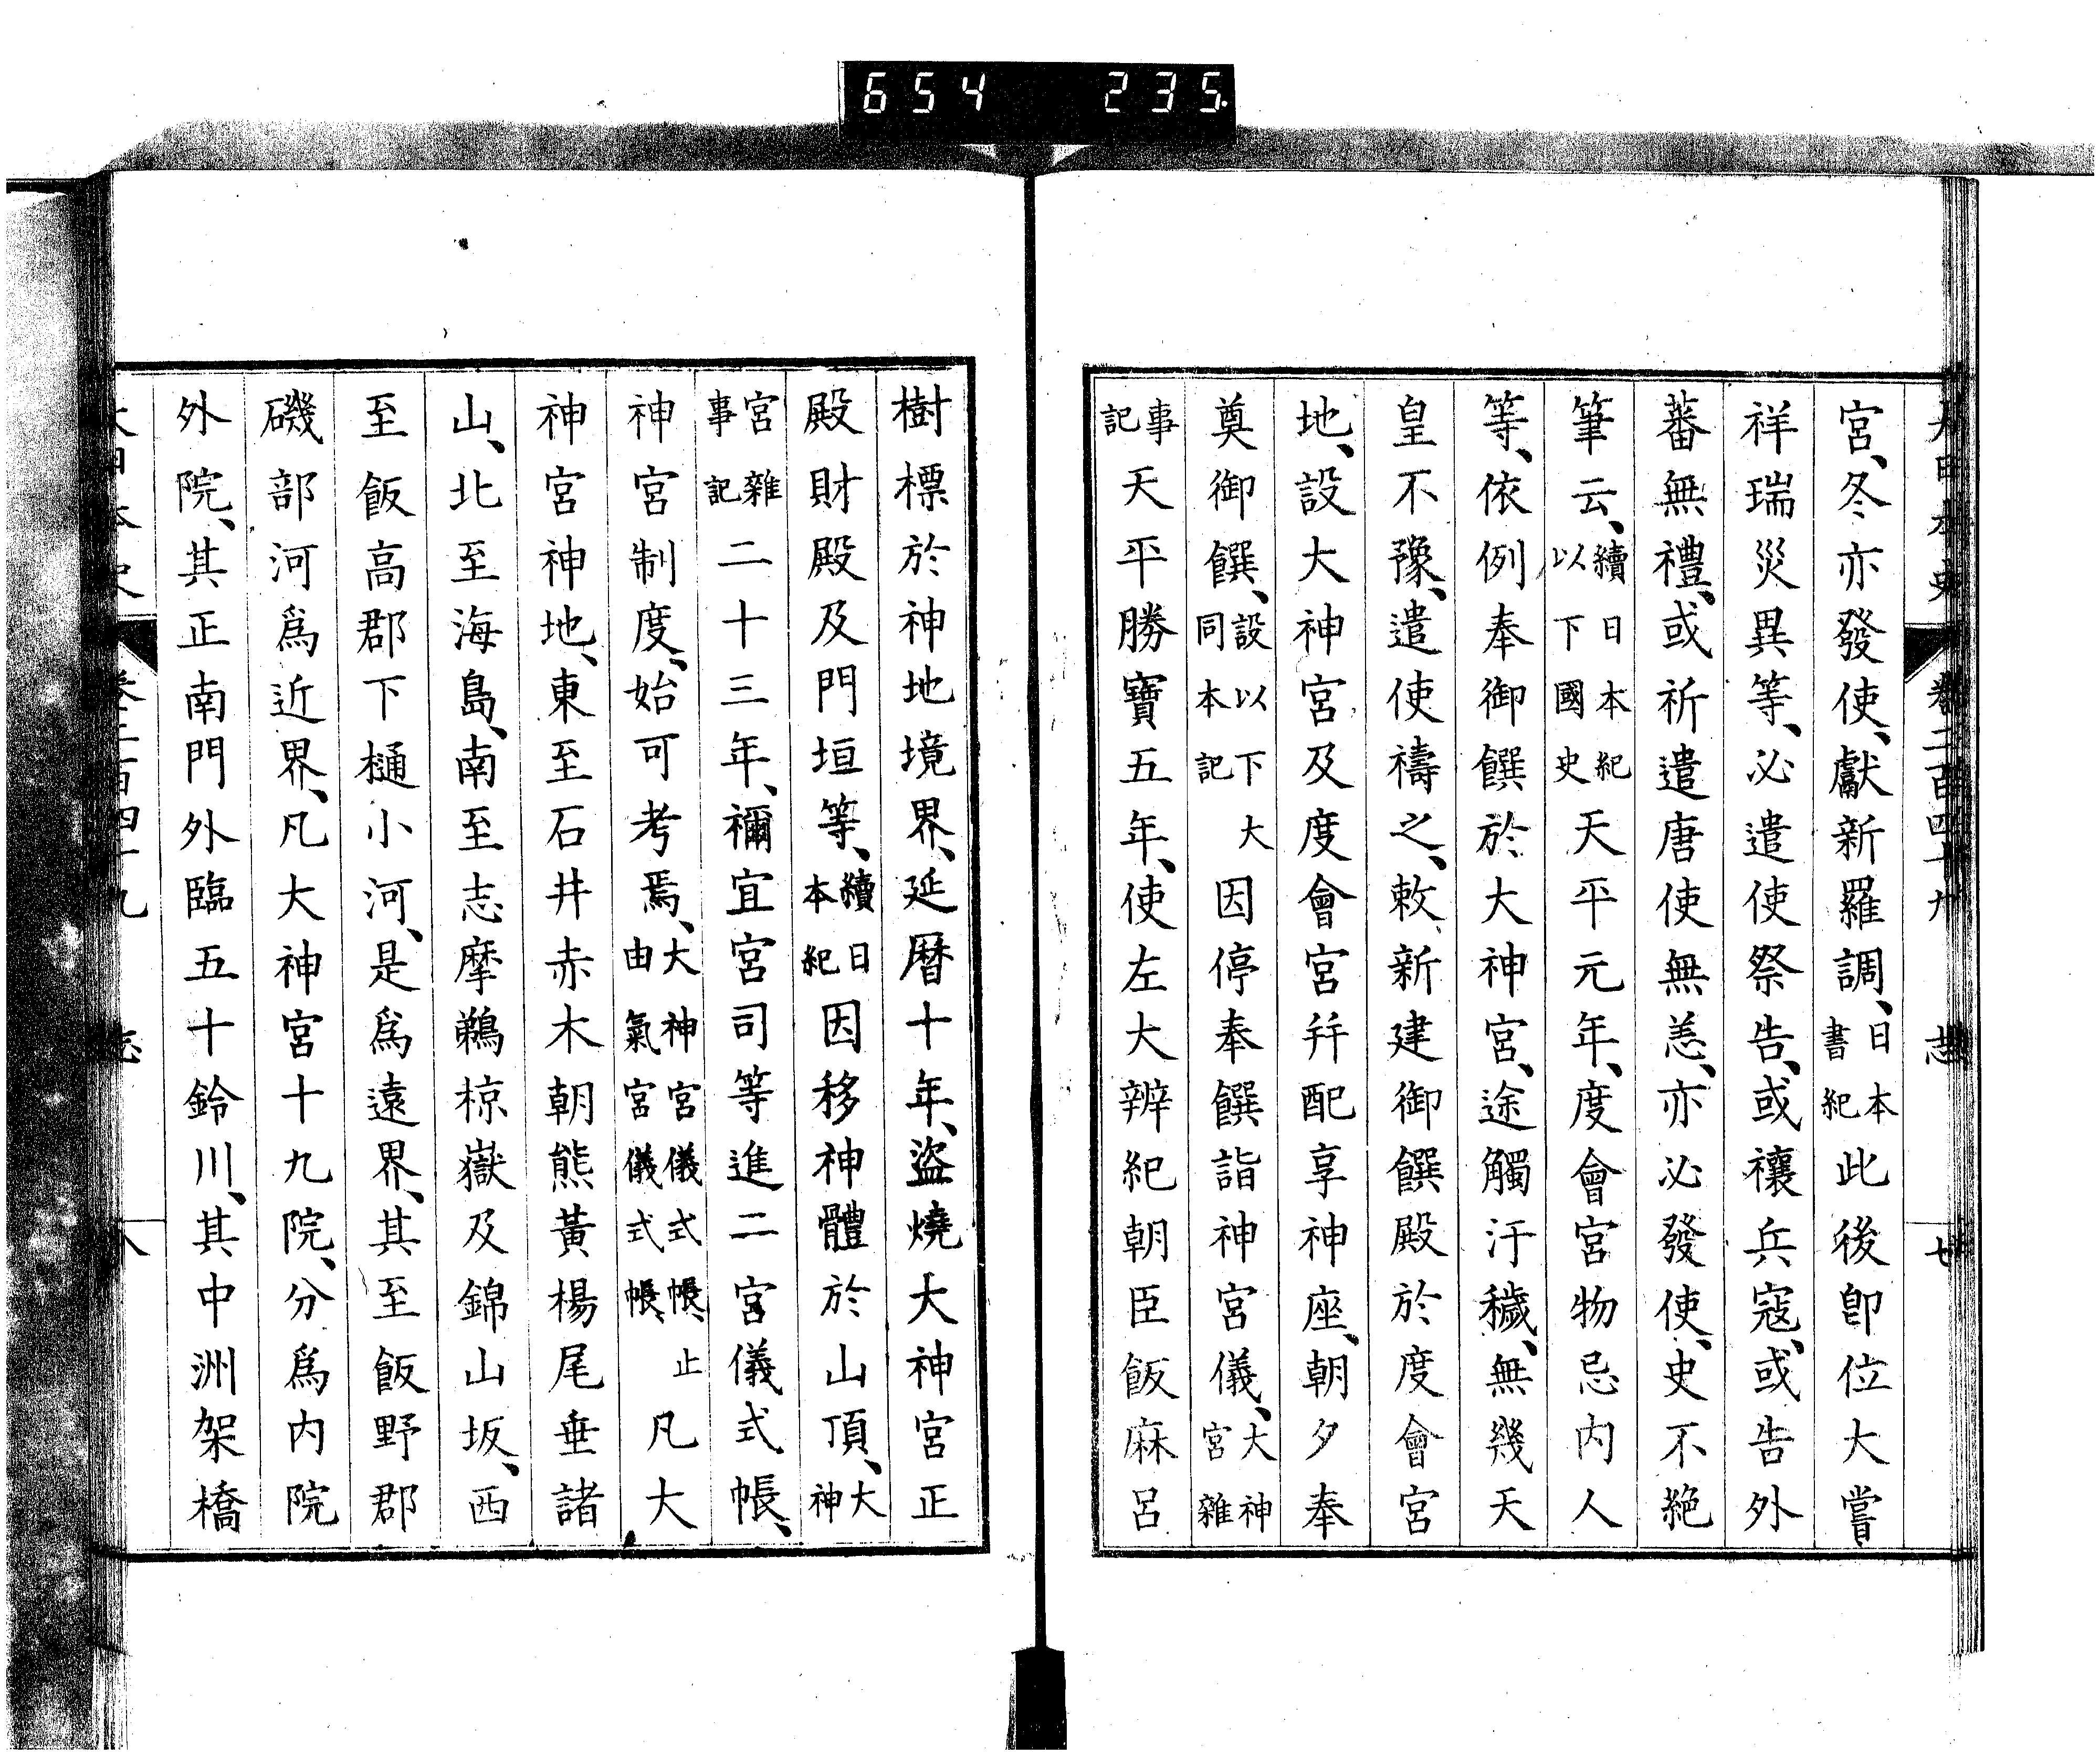 654 235
大日本史 卷二百四十九 志 七
宮、冬亦發使、獻新羅調、日本書紀此後卽位大嘗
祥瑞災異等、必遣使祭告、或禳兵寇、或告外
蕃無禮、或祈遣唐使無恙、亦必發使、史不絕
筆云、續日本紀以下國史天平元年、度會宮物忌內人
等、依例奉御饌於大神宮、途觸汙穢、無幾天
皇不豫、遣使禱之、敕新建御饌殿於度會宮
地、設大神宮及度會宮幷配享神座、朝夕奉
奠御饌、設以下大同本記因停奉饌詣神宮儀、大神宮雜
事記天平勝寶五年、使左大辨紀朝臣飯麻呂
樹標於神地境界、延曆十年、盜燒大神宮正
殿財殿及門垣等、續日本紀因移神體於山頂、大神
宮雜事記二十三年、禰宜宮司等進二宮儀式帳、
神宮制度、始可考焉、大神宮儀式帳、止由氣宮儀式帳、凡大
神宮神地、東至石井赤木朝熊黃楊尾垂諸
山、北至海島、南至志摩鵜椋嶽及錦山坂、西
至飯高郡下樋小河、是爲遠界、其至飯野郡
磯部河爲近界、凡大神宮十九院、分爲內院
外院、其正南門外臨五十鈴川、其中洲架橋
大日本史 卷二百四十九 志 八